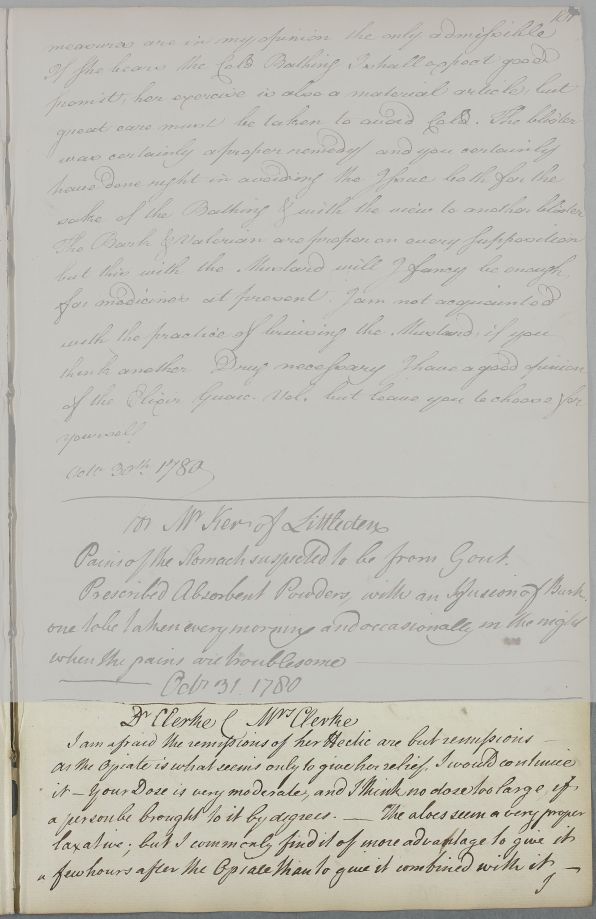 measures are in my opinion the only admissible
If she bears the Cold Bathing I shall expect good
from it, her exercise is also a material article, but
great care must be taken to avoid Cold. The blister
was certainly a proper remedy and you certainly
have done right in avoiding the Issue both for the
sake of the Bathing & with the view to another blister
The Bark & Valerian are proper on every supposition
but this with the Mustard will I fancy be enough
for medicines at present. I am not acquainted
with the practice of bruising the Mustard; if you
think another Drug necessary I have a good opinion
of the Elixir Guaic. Vol. but leave you to choose for
yourself
Octr. 30th 1780
For Mr Ker of Littledean
Pains of the Stomach suspected to be from Gout.
Prescribed Absorbent Powders, with an Infusion of Bark,
one to be taken every morning and occasionally in the night
when the pains are troublesome
Octr 31. 1780
Dr Clerke ( Mrs Clerke
I am afraid the remissions of her Hectic are but remissions —
As the Opiate is what seems only to give her relief, I would continue
it — Your Dose is very moderate, and I think no dose too large, if
a person be brought to it by degrees. — The aloes seem a very proper
laxative; but I commonly find it of more advantage to give it
a few hours after the Opiate than to give it combined with it —